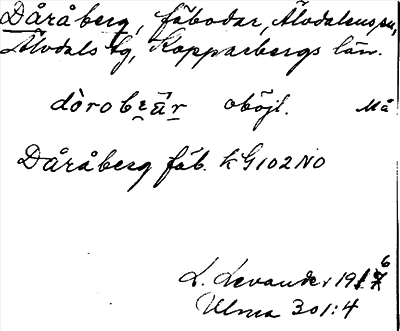 Dåråberg, fäbodar, Älvdalens sn,
Älvdals tg, Kopparbergs län.
dòrobɛär oböjl. Må
Dåråberg fäb. kG102NO
L. Levander 1916
Ulma 301:4